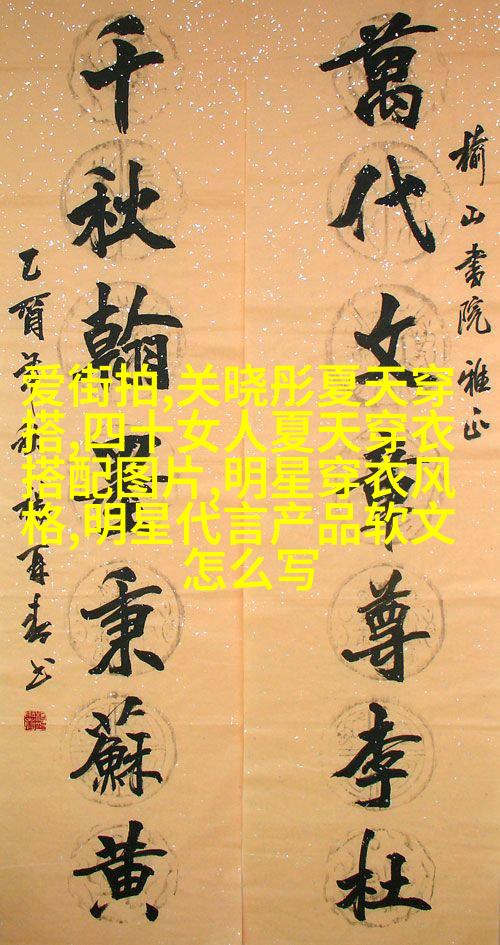 榆山書院雅正
萬代文章尊李杜
千秋翰秉蘇黄
爱街拍,关晓彤夏天穿
搭,四十女人夏天穿衣
搭配图片,明星穿衣风
格,明星代言产品软文
怎么写